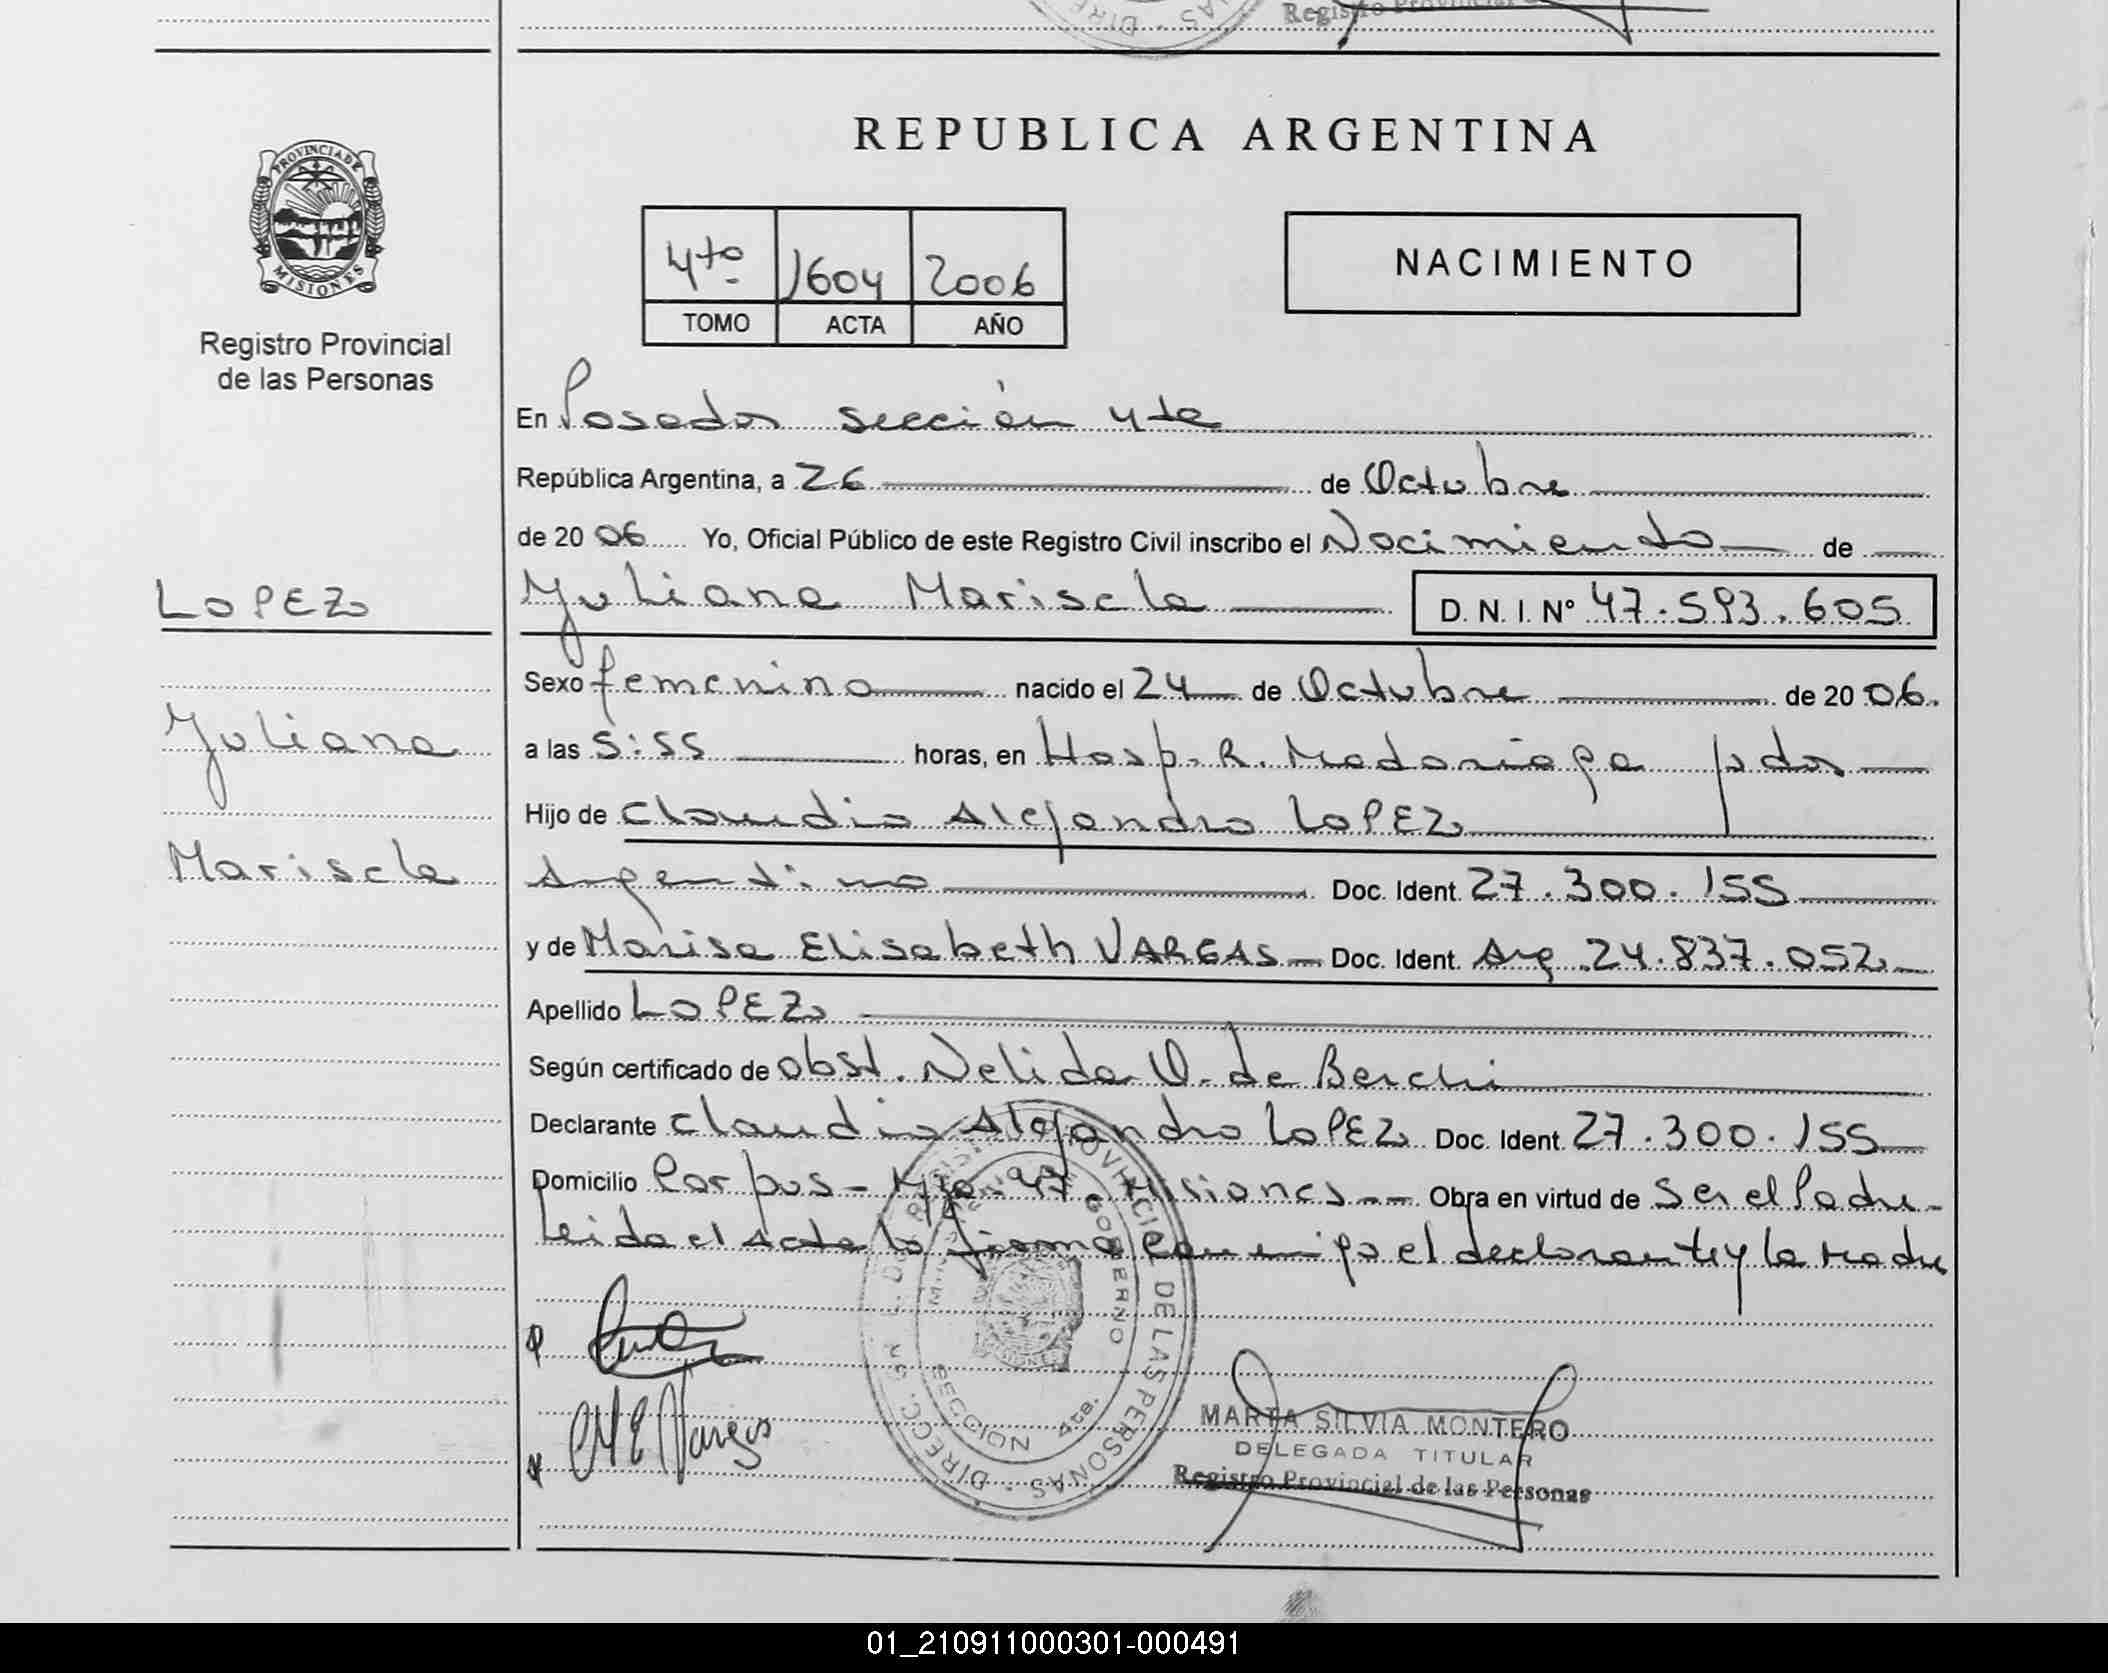 Registro Provincial
REPUBLICA ARGENTINA
PROVINCIA DE
MISIONES
Registro Provincial
de las Personas
4to 1604 2006
TOMO ACTA AÑO
NACIMIENTO
En Posadas sección 4ta
República Argentina, a 26 de Octubre
de 2006 Yo, Oficial Público de este Registro Civil inscribo el Nacimiento de
LOPEZ
Yuliana Marisela D. N. I. Nº 47.593.605
Sexo femenino nacido el 24 de Octubre de 2006.
Yuliana
a las 5:55 horas, en Hosp. R. Madariaga pdas
Hijo de Claudio Alejandro LOPEZ
Marisela
Argentino Doc. Ident. 27.300.155
y de Marisa Elisabeth VARGAS Doc. Ident. Arg 24.837.052
Apellido LOPEZ
Según certificado de obst. Nelida O. de Berchi
Declarante Claudio Alejandro LOPEZ Doc. Ident. 27.300.155
Domicilio Corpus - 47 - Misiones -- Obra en virtud de Ser el Padre -
Leida el Acta la firma conmigo el declarante y la Madre
REGISTRO PROVINCIAL DE LAS PERSONAS - DIRECC. GRAL.
MINISTERIO DE GOBIERNO
SECCION 4ta.
M E Vargas
MARTA SILVIA MONTERO
DELEGADA TITULAR
Registro Provincial de las Personas
01_210911000301-000491